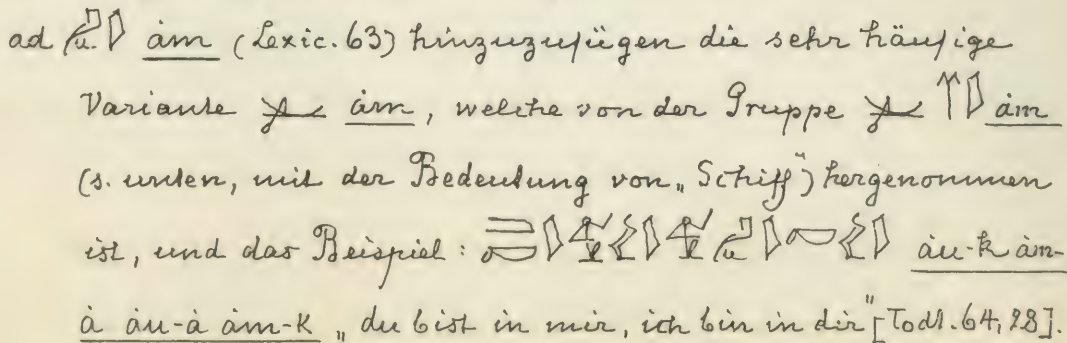 ad àm (Lexic. 63) hinzuzufügen die sehr häufige
Variante àm, welche von der Gruppe àm
(s. unten, mit der Bedeutung von „Schiff") hergenommen
ist, und das Beispiel: àu-k àm-
à àu-à àm-k „du bist in mir, ich bin in dir" [Todt. 64,28].